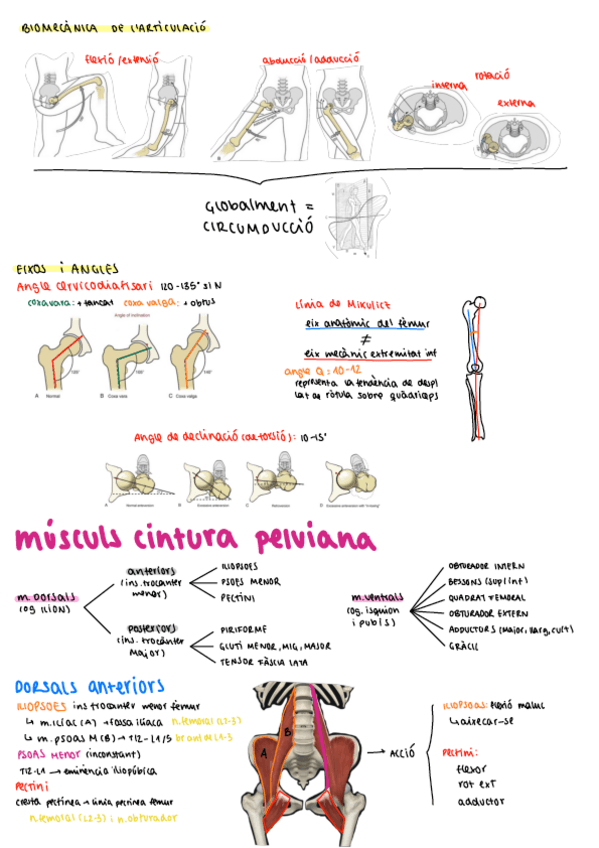 BIOMECÀNICA DE L'ARTICULACIÓ
flexió/extensió
abducció/adducció
rotació
interna
externa
Globalment =
CIRCUMDUCCIÓ
EIXOS i ANGLES
Angle cervicodiafisari 120-135° si N
coxavara: + tancat coxa valga: + obtus
Angle of inclination
A Normal
B Coxa vara
C Coxa valga
Línia de Mikulicz
eix anatòmic del fèmur
≠
eix mecànic extremitat inf
angle Q: 10-12
representa la tendència de despl
lat de ròtula sobre quàdriceps
Angle de declinació (detorsió): 10-15°
A Normal anteversion
B Excessive anteversion
C Retroversion
D
músculs cintura pelviana
m. DORSALS
(og ILION)
anteriors
(ins. trocanter
menor)
ILIOPSOES
PSOES MENOR
PECTINI
posteriors
(ins. trocànter
Major)
PIRIFORME
GLUTI MENOR, MIG, MAJOR
TENSOR FÀSCIA LATA
m. ventrals
(og. isquion
i pubis)
OBTURADOR INTERN
BESSONS (sup/int)
QUADRAT FEMORAL
OBTURADOR EXTERN
ADDUCTORS (Major, llarg, curt)
GRÀCIL
DORSALS anteriors
ILIOPSOES ins trocanter menor fèmur
↳ m. ilíac (A) → fossa ilíaca n. femoral (L2-3)
↳ m. psoas M (B) → T12-L1/5 bram ML1-3
PSOAS MENOR (inconstant)
T12-L1 → eminència iliopúbica
Pectini
cresta pectínea → línia pectínea fèmur
n. femoral (L2-3) i n. obturador
A
B
→ ACCIÓ
ILIOPSOAS: flexió maluc
↳ aixecar-se
Pectini:
flexor
rot ext
adductor